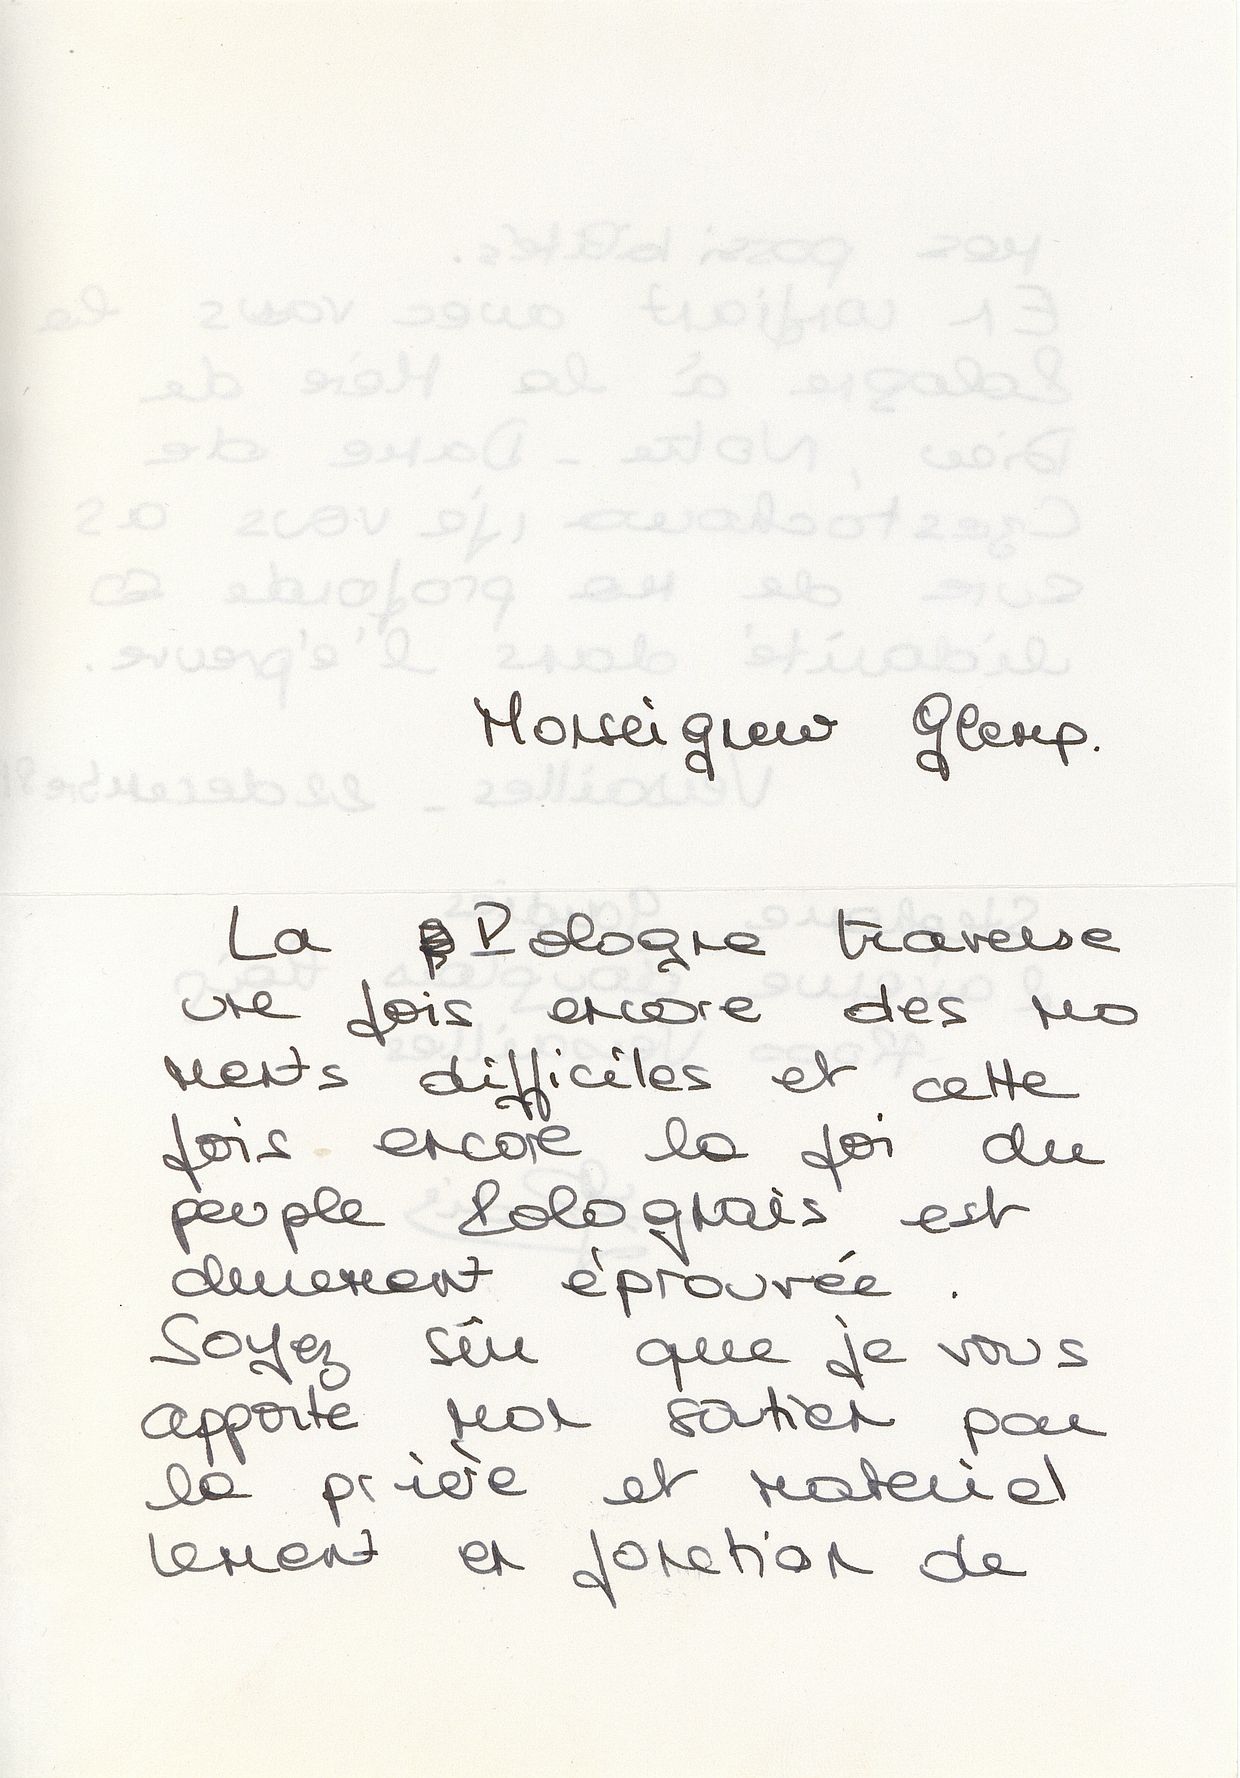 Monseigneur Glemp.
La Pologne traverse
une fois encore des mo
ments difficiles et cette
fois encore la foi du
peuple Polognais est
durement éprouvée.
Soyez sûr que je vous
apporte mon soutien par
la prière et matériel
lement en fonction de